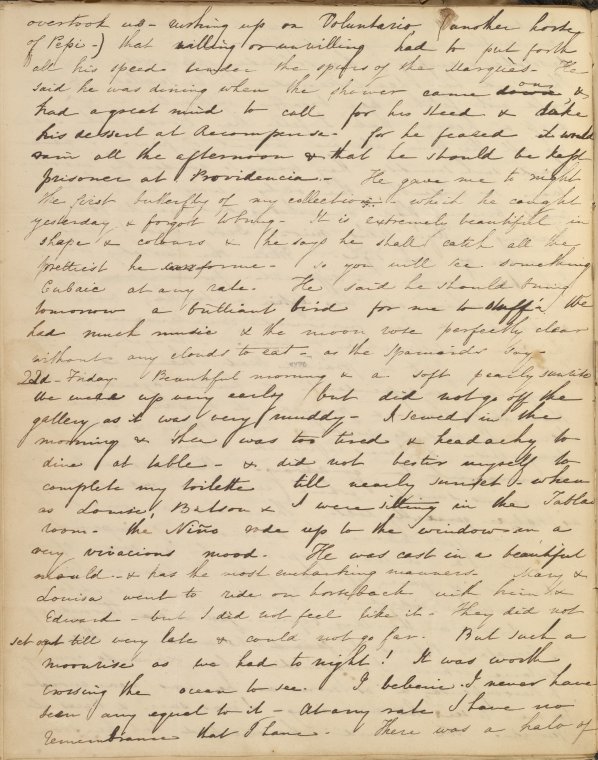 overtook us - rushing up on Voluntario (another horse
of Pepi -) that willing or unwilling had to put forth
all his speed under the spurs of the Marques - He
said he was dining when the shower came on, &
had a great mind to call for his steed & take
his dessert at Recompense - for he feared it would
rain all the afternoon & that he should be kept
prisoner at Providencia - He gave me to night
the first butterfly of my collection - which he caught
yesterday & forgot to bring - It is extremely beautiful in
shape & colours & he says he shall catch all the
prettiest he can for me - so you will see something
Cubaic at any rate. He said he should bring
tomorrow a brilliant bird for me to stuff. We
had much music & the moon rose perfectly clear
without any clouds to eat - as the Spaniards say -
22d - Friday. Beautiful morning & a soft pearly sunlike
We were up very early but did not go off the
gallery as it was very muddy - I sewed in the
morning & then was too tired & headachy to
dine at table - & did not bestir myself to
complete my toilette till nearly sunset - when
as Louisa, Batson & I were sitting in the Tabla
room - the Niño rode up to the window in a
very vivacious mood. He was cast in a beautiful
mould - & has the most enchanting manners. Mary &
Louisa went to ride on horseback with him &
Edward - but I did not feel like it. They did not
set out till very late & could not go far. But such a
moonrise as we had to night! It was worth
crossing the ocean to see. I believe I never have
seen any equal to it - At any rate I have no
remembrance that I have. There was a halo of